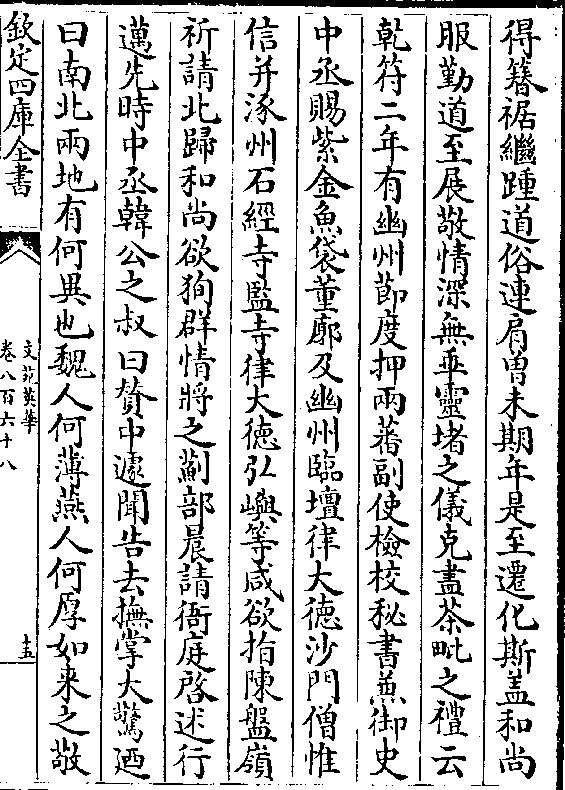 得簮裾繼踵道俗連肩曽未期年是至遷化斯盖和尚
服勤道至展敬情深無虧靈堵之儀克盡茶毗之禮云
乾符二年有幽州節度押兩蕃副使檢校秘書兼御史
中丞賜紫金魚袋董廓及幽州臨壇律大德沙門僧惟
信并涿州石經寺監寺律大德弘嶼等咸欲指陳盤嶺
祈請北歸和尚欲狥群情將之薊部晨請衙庭啓述行
邁先時中丞韓公之叔曰贊中遽聞告去撫掌大驚廼
曰南北兩地有何異也魏人何薄燕人何厚如来之敬
欽定四庫全書
文苑英華
卷八百六十八
十五